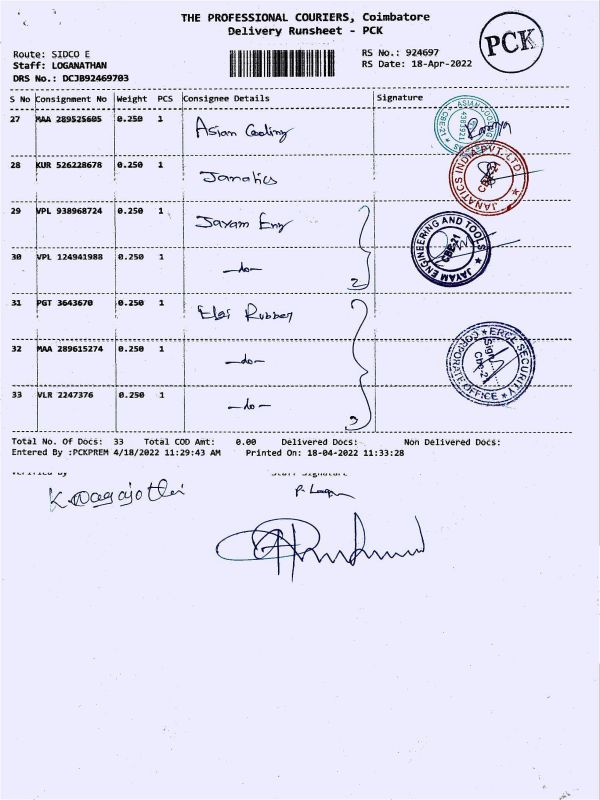 THE PROFESSIONAL COURIERS, Coimbatore
Delivery Runsheet - PCK
PCK
Route: SIDCO E
Staff: LOGANATHAN
DRS No.: DCJB92469703
RS No.: 924697
RS Date: 18-Apr-2022
S No Consignment No Weight PCS Consignee Details Signature
27 MAA 289525605 0.250 1 Asian Cooling
28 KUR 526228678 0.250 1 Janatics
JANATICS INDIA PVT. LTD
CBE-21
29 VPL 938968724 0.250 1 Jayam Eng
JAYAM ENGINEERING AND TOOLS
CBE-21
30 VPL 124941988 0.250 1 -do-
2
31 PGT 3643670 0.250 1 Elgi Rubber
32 MAA 289615274 0.250 1 -do-
ERCL SECURITY
CORPORATE OFFICE
Sign
33 VLR 2247376 0.250 1 -do-
3
Total No. Of Docs: 33 Total COD Amt: 0.00 Delivered Docs: Non Delivered Docs:
Entered By :PCKPREM 4/18/2022 11:29:43 AM Printed On: 18-04-2022 11:33:28
Verified By Staff Signature